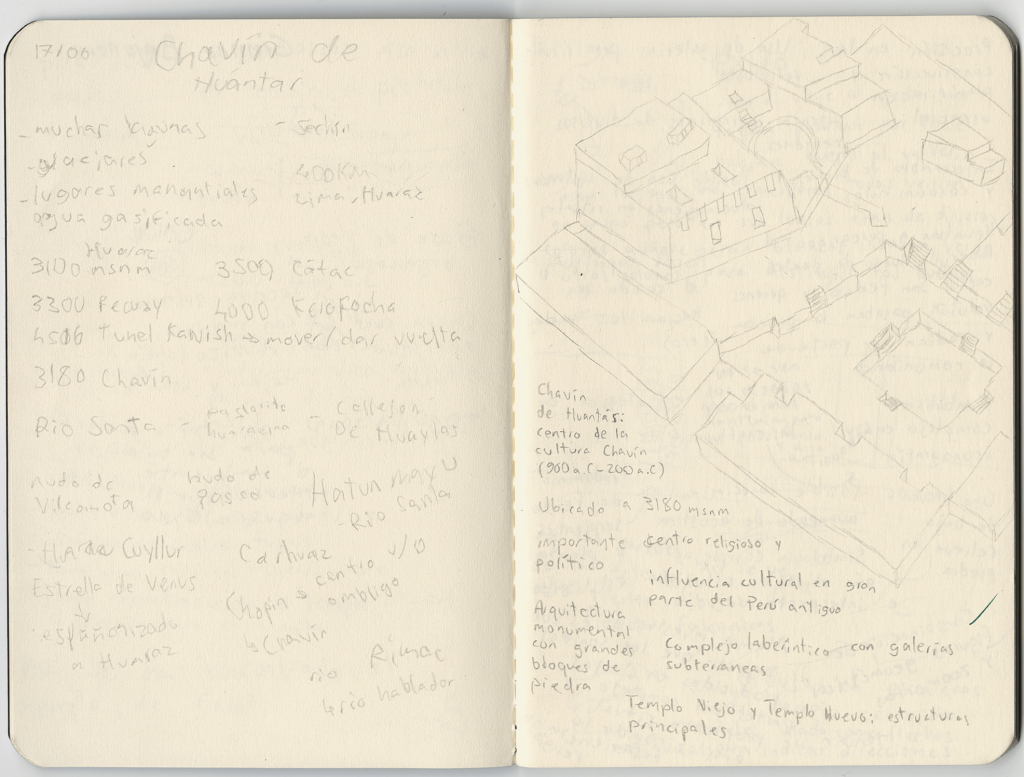 17/06
Chavín de
Huántar
- muchar lagunas
- glaciares
- lugares manantiales
agua gasificada
- Sechín
400Km
Lima, Huaraz
Huaraz
3100 msnm
3300 Recuay
4516 Tunel Kawish → mover/dar vuelta
3180 Chavín
3500 Cátac
4000 Keiofocha
Río Santa -
pastorita
huaracina
- Callejón
De Huaylas
nudo de
Vilcanota
nudo de
pasco
Hatun mayu
↳ Río Santa
- Huaraz Cuyllur
Estrella de Venus
↓
españolizado
a Huaraz
Carhuaz
Chapin → centro v/o
ombligo
↳ Chavín
Rímac
río
↳ río hablador
Chavín
de Huantás:
centro de la
cultura Chavín
(900 a.C - 200 a.C)
Ubicado a 3180 msnm
importante centro religioso y
político
influencia cultural en gran
parte del Perú antiguo
Arquitectura
monumental
con grandes
bloques de
piedra
Complejo laberíntico con galerías
subterraneas
Templo Viejo y Templo Nuevo: estructuras
principales